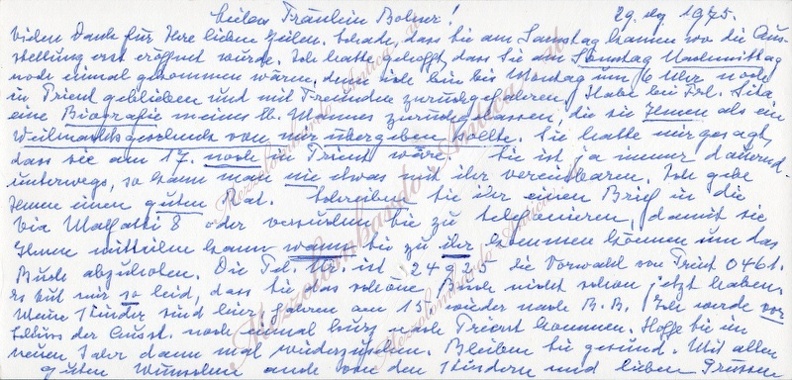 Liebes Fräulein Bolner! 29. Dez 1975.
Vielen Dank für Ihre lieben Zeilen. Schade, dass Sie am Samstag kamen wo die Aus-
stellung erst eröffnet wurde. Ich hatte gehofft, dass Sie am Samstag Nachmittag
noch einmal gekommen wären, denn ich bin bis Montag um 6 Uhr noch
in Trient geblieben und mit Freunden zurückgefahren. Habe bei Frl. Sita
eine Biografie meines lb. Mannes zurückgelassen, die sie Ihnen als ein
Weihnachtsgeschenk von mir übergeben sollte. Sie hatte mir gesagt,
dass sie am 17. noch in Trient wäre. Sie ist ja immer dauernd
unterwegs, so kann man nie etwas mit ihr vereinbaren. Ich gebe
Ihnen einen guten Rat. Schreiben Sie ihr einen Brief in die
Via Malfatti 8 oder versuchen Sie zu telefonieren, damit sie
Ihnen mitteilen kann wann Sie zu ihr kommen können um das
Buch abzuholen. Die Tel. Nr. ist 24925 die Vorwahl von Trient 0461.
Es tut mir so leid, dass Sie das schöne Buch nicht schon jetzt haben.
Meine Kinder sind hier, fahren am 15. wieder nach B.B. Ich werde vor
Schluss der Ausst. noch einmal kurz nach Trient kommen. Hoffe Sie im
neuen Jahr dann mal wiederzusehen. Bleiben Sie gesund. Mit allen
guten Wünschen auch von den Kindern und lieben Grüssen
Mezzolombardo
Mezzolombardo